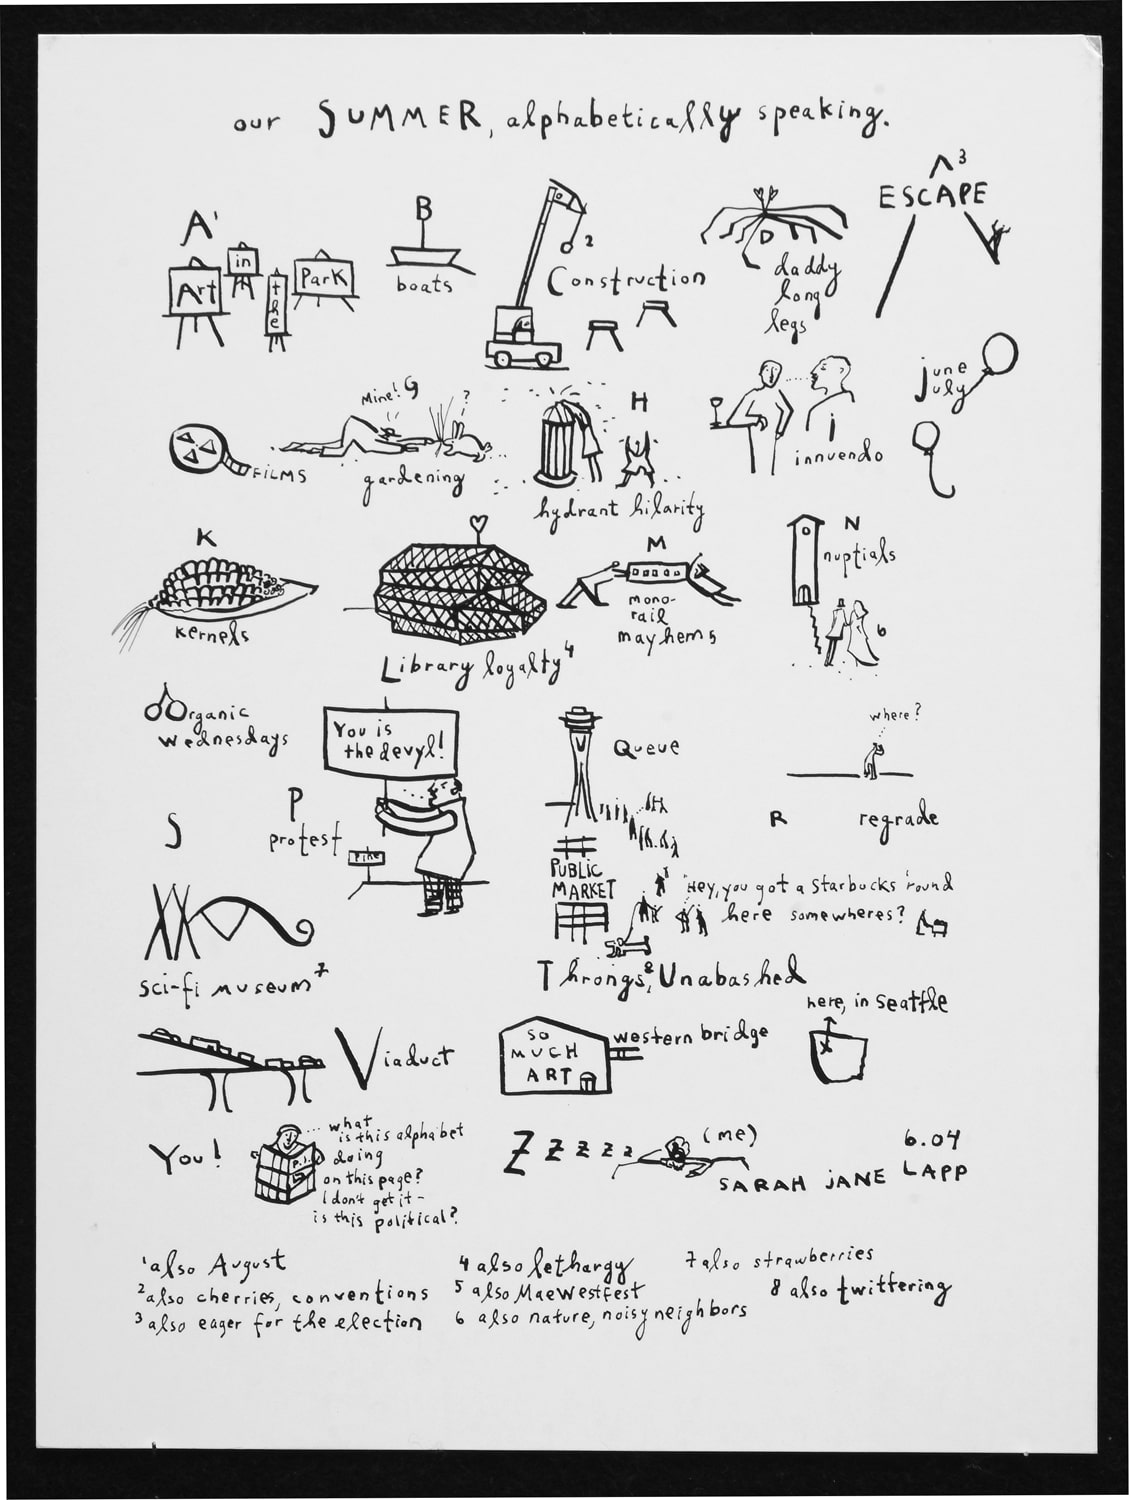 our SUMMER, alphabetically speaking.
A¹
Art in the Park
B
boats
2
Construction
D
daddy
long
legs
3
ESCAPE
FILMS
Mine! G ?
gardening
H
hydrant hilarity
i
innuendo
june
uly
K
kernels
Library loyalty⁴
M
mono-
rail
mayhem 5
N
nuptials
6
Organic
Wednesdays
You is
the devyl!
P
protest
Pike
Queue
where?
R regrade
S
sci-fi museum⁷
PUBLIC
MARKET
Hey, you got a Starbucks 'round
here somewheres?
Throngs⁸, Unabashed
Viaduct
SO
MUCH
ART
western bridge
here, in seattle
x
You!
P.I.
what
is this alphabet
doing
on this page?
I don't get it-
is this political?
Z z z z z (me)
SARAH JANE LAPP
6.04
¹also August
²also cherries, conventions
³also eager for the election
4 also lethargy
5 also MaeWestfest
6 also nature, noisy neighbors
7 also strawberries
8 also twittering